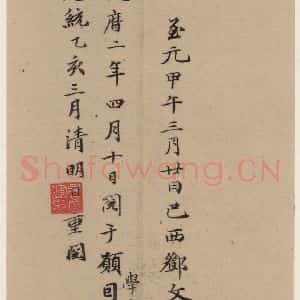 至元甲午三月廿日己酉鄧文
曆二年四月十日閱于頤
學
統乙亥三月清明重閱
Shufawang.CN